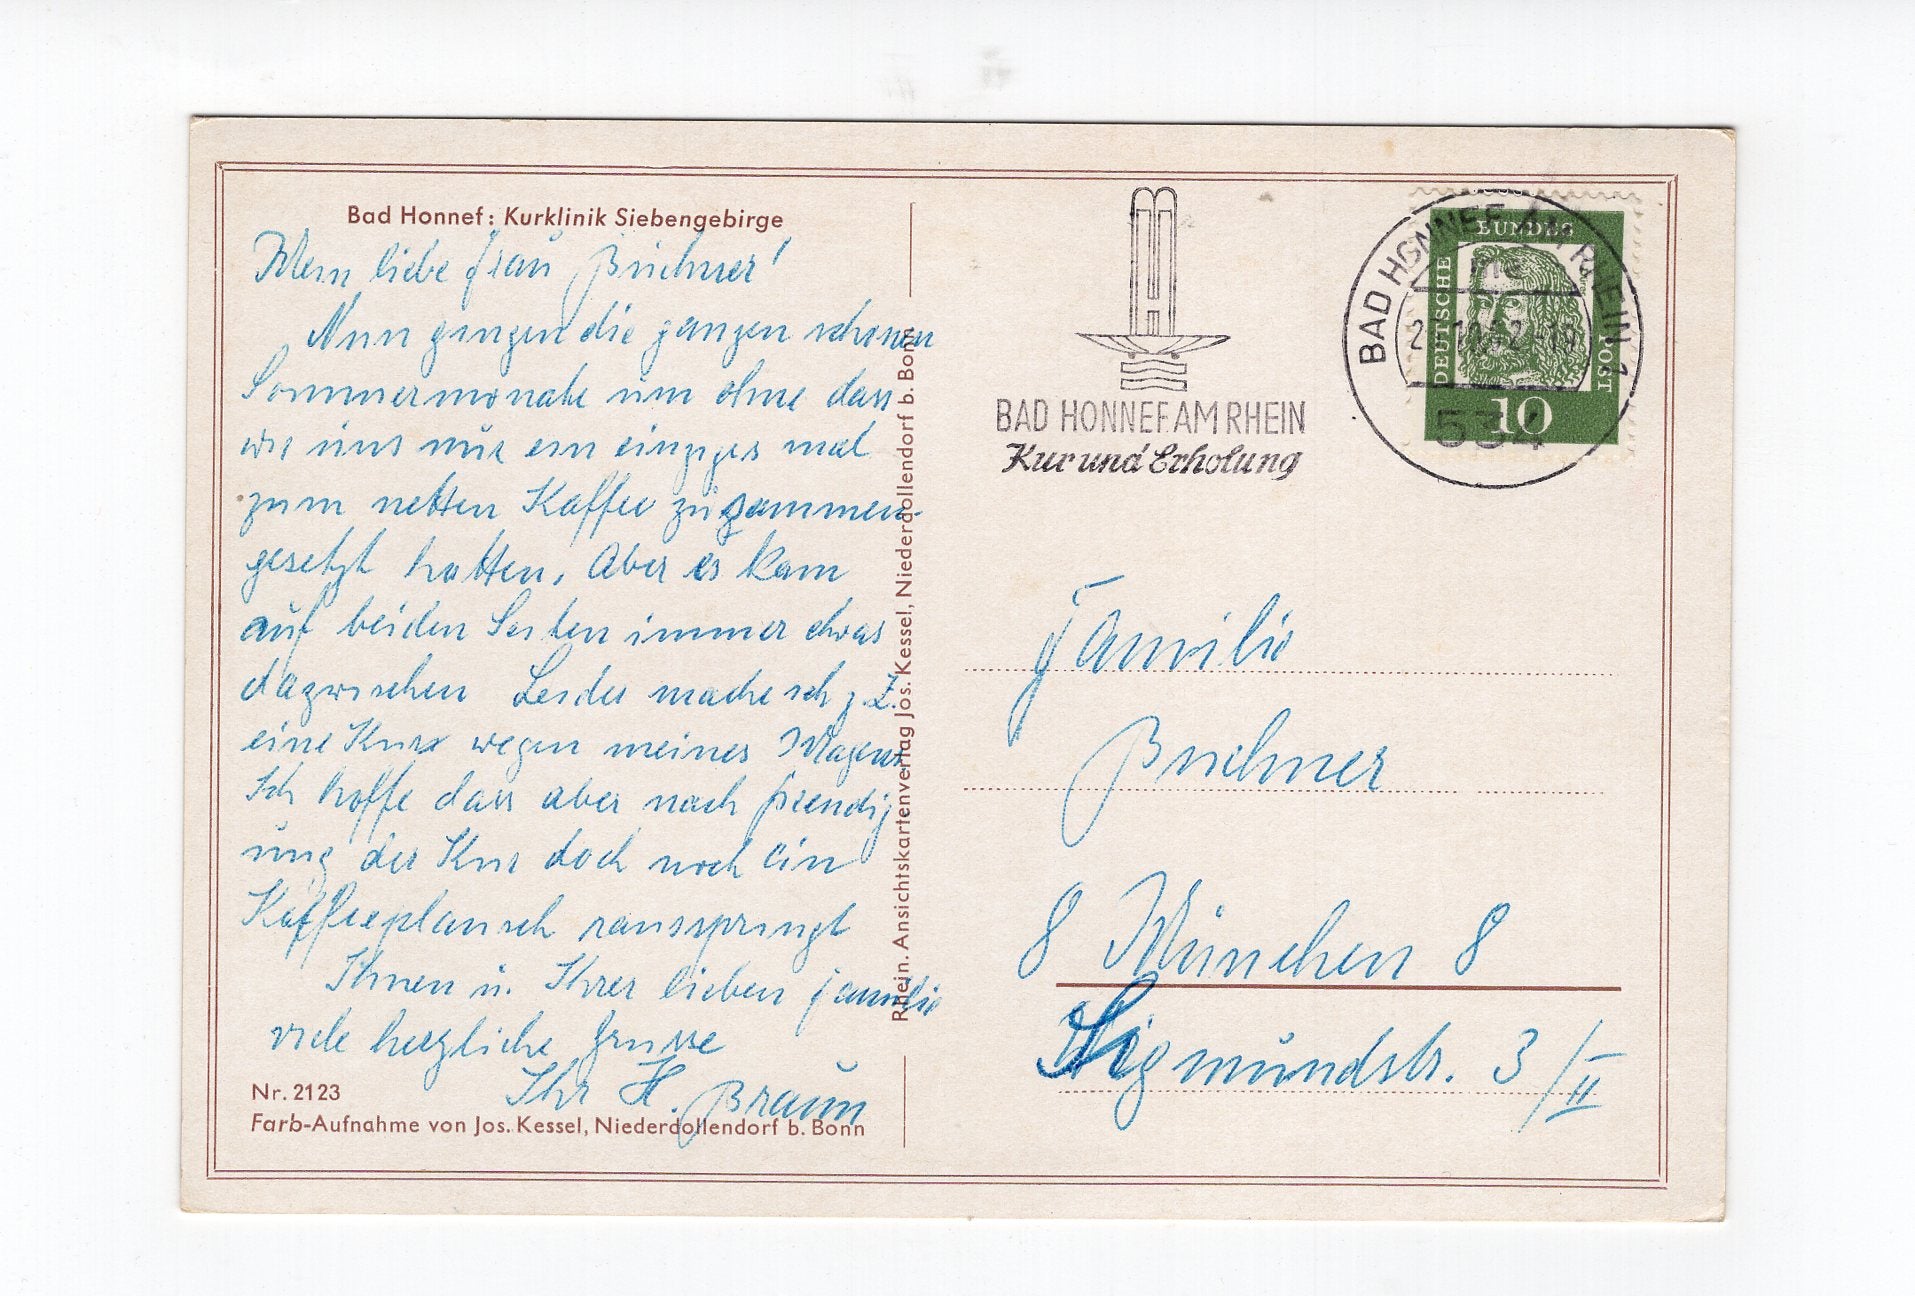 Bad Honnef: Kurklinik Siebengebirge
Mein liebe Frau Büchner!
Nun gingen die ganzen schönen
Sommermonate um ohne dass
wir uns nur ein einziges mal
zum netten Kaffee zusammen-
gesetzt hatten, Aber es kam
auf beiden Seiten immer etwas
dazwischen Leider mache ich z. Z.
eine Kur wegen meines Magens
Ich hoffe dass aber nach Beendig
ung der Kur doch noch ein
Kaffeeplausch rausspringt
Ihnen u. Ihrer lieben Familie
viele herzliche Grüsse
Ihr H. Braun
Nr. 2123
Farb-Aufnahme von Jos. Kessel, Niederdollendorf b. Bonn
Rhein. Ansichtskartenverlag Jos. Kessel, Niederdollendorf b. Bonn
BAD HONNEF AM RHEIN
Kur und Erholung
BAD HONNEF AM RHEIN 1
534
DEUTSCHE
BUNDES
POST
10
Familie
Büchner
8 München 8
Sigmundstr. 3/II